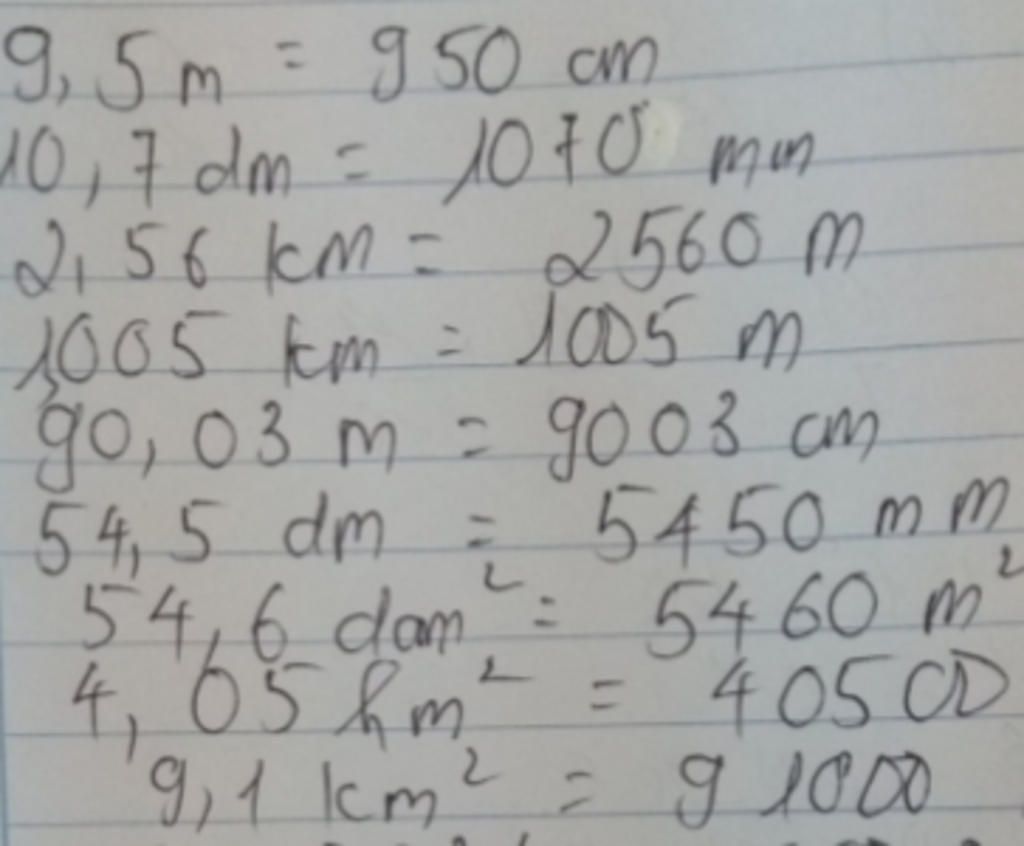 9,5 m = 950 cm
10,7 dm = 1070 mm
2,56 km = 2560 m
1,005 km = 1005 m
90,03 m = 9003 cm
54,5 dm = 5450 mm
54,6 dam² = 5460 m²
4,05 hm² = 40500
9,1 km² = 91000